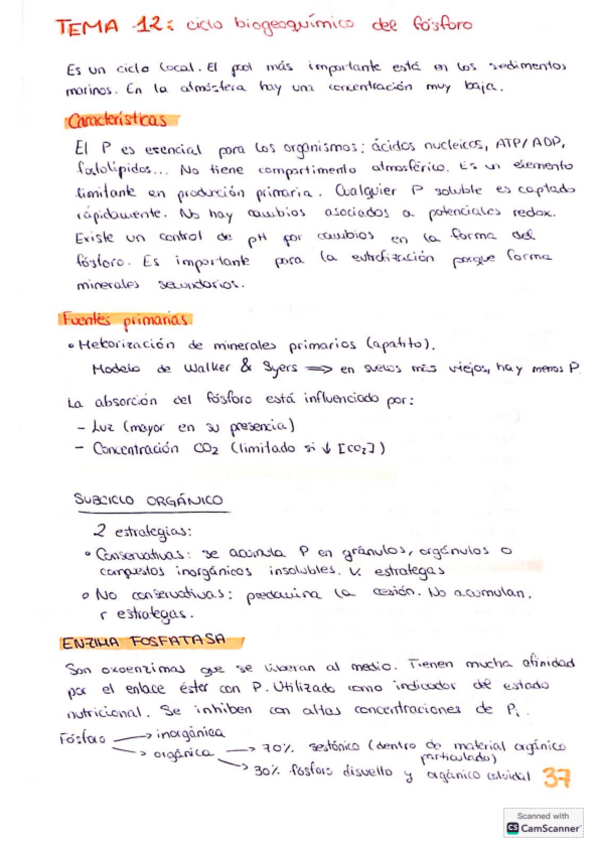 TEMA 12: ciclo biogeoquímico del fósforo
Es un ciclo local. El pool más importante está en los sedimentos
marinos. En la atmósfera hay una concentración muy baja.
Características
El P es esencial para los organismos: ácidos nucleicos, ATP/ADP,
fosfolípidos... No tiene compartimento atmosférico. Es un elemento
limitante en producción primaria. Cualquier P soluble es captado
rápidamente. No hay cambios asociados a potenciales redox.
Existe un control de pH por cambios en la forma del
fósforo. Es importante para la eutrofización porque forma
minerales secundarios.
Fuentes primarias
• Meteorización de minerales primarios (apatito).
Modelo de Walker & Syers ⟹ en suelos más viejos, hay menos P.
La absorción del fósforo está influenciado por:
- Luz (mayor en su presencia)
- Concentración CO2 (limitado si ↓ [CO2])
SUBCICLO ORGÁNICO
2 estrategias:
• Conservativas: se acumula P en gránulos, orgánulos o
compuestos inorgánicos insolubles. K estrategas
• No conservativas: predomina la cesión. No acumulan.
r estrategas.
ENZIMA FOSFATASA
Son exoenzimas que se liberan al medio. Tienen mucha afinidad
por el enlace éster con P. Utilizado como indicador de estado
nutricional. Se inhiben con altas concentraciones de Pi.
Fósforo → inorgánica
→ orgánica → 70% sestónico (dentro de material orgánico
particulado)
→ 30% fósforo disuelto y orgánico coloidal
37
Scanned with
CS CamScanner